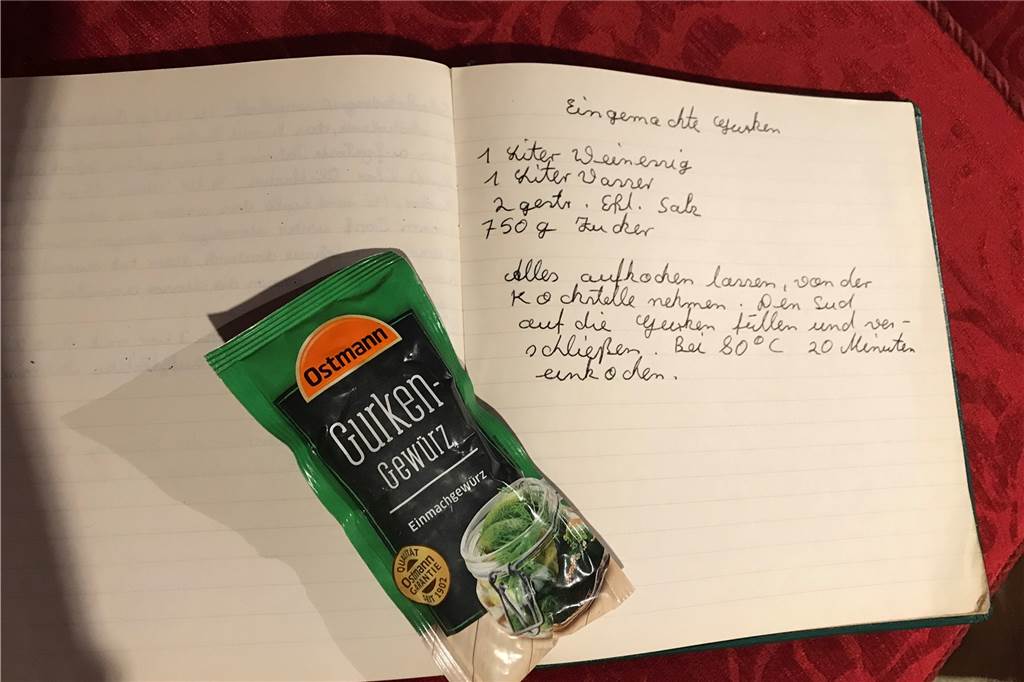 Eingemachte Gurken
1 Liter Weinessig
1 Liter Wasser
2 gestr. Eßl. Salz
750 g Zucker
Alles aufkochen lassen, von der
Kochstelle nehmen. Den Sud
auf die Gurken füllen und ver-
schließen. Bei 80°C 20 Minuten
einkochen.
Ostmann
Gurken-
Gewürz
Einmachgewürz
QUALITÄT
Ostmann
GARANTIE
SEIT 1902